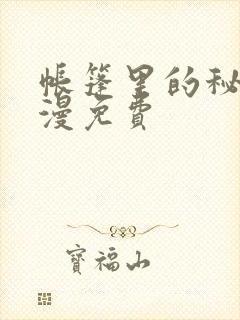 帐篷里的秘
漫免费
宝福山